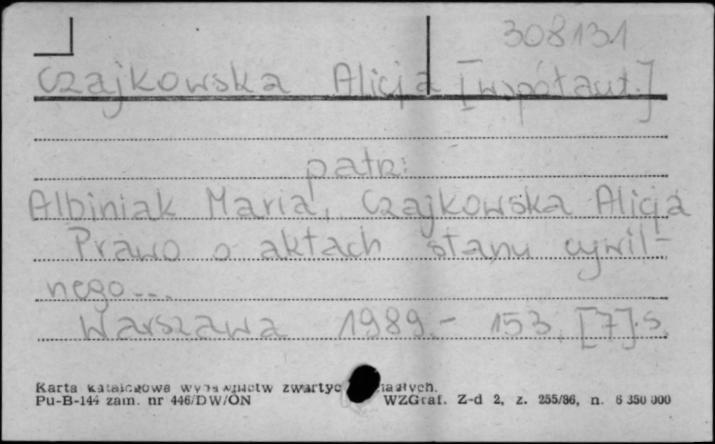 308131
Czajkowska Alicja [współaut.]
patrz:
Albiniak Maria, Czajkowska Alicja
Prawo o aktach stanu cywil-
nego...
Warszawa 1989.- 153, [7] s.
Karta katalogowa wydawnictw zwartych
Pu-B-144 zam. nr 446/DW/ON WZGraf. Z-d 2, z. 255/86, n. 6 350 000